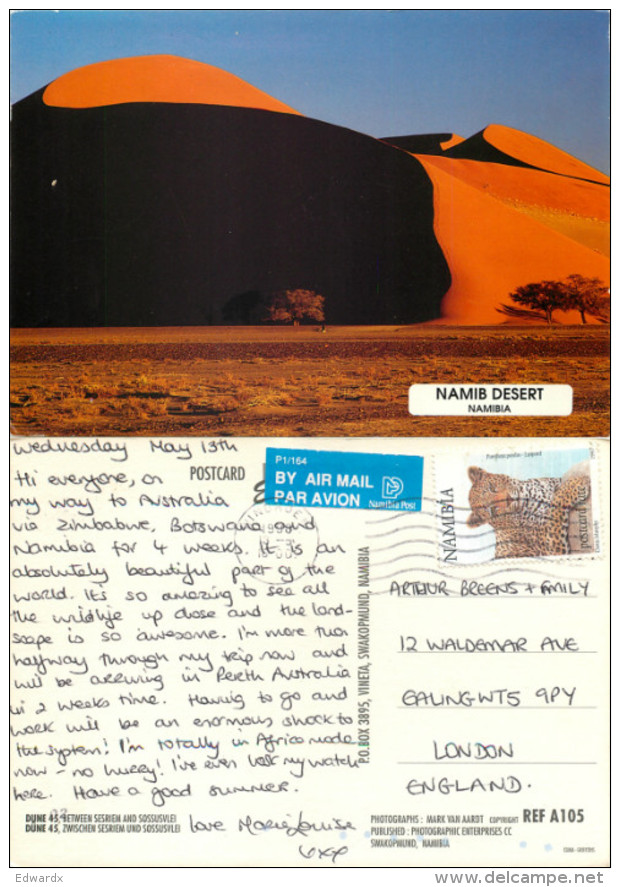 NAMIB DESERT
NAMIBIA
Wednesday May 13th
Hi everyone, on
my way to Australia
via Zimbabwe, Botswana and
Namibia for 4 weeks. It is an
absolutely beautiful part of the
world. It's so amazing to see all
the wildlife up close and the land-
scape is so awesome. I'm more than
halfway through my trip now and
will be arriving in Perth Australia
in 2 weeks time. Having to go and
work will be an enormous shock to
the system! I'm totally in Africa mode
now - no hurry! I've even lost my watch
here. Have a good summer.
love Marie Louise
xxx
POSTCARD
P1/164
BY AIR MAIL
PAR AVION
Namibia Post
NAMIBIA
Panthera pardus - Leopard
Postcard Rate
1997
P.O BOX 3895, VINETA, SWAKOPMUND, NAMIBIA
ARTHUR BREENS + FAMILY
12 WALDEMAR AVE
EALING W5 9PY
LONDON
ENGLAND.
DUNE 45, BETWEEN SESRIEM AND SOSSUSVLEI
DÜNE 45, ZWISCHEN SESRIEM UND SOSSUSVLEI
PHOTOGRAPHS : MARK VAN AARDT COPYRIGHT REF A105
PUBLISHED : PHOTOGRAPHIC ENTERPRISES CC
SWAKOPMUND, NAMIBIA
Edwardx
www.delcampe.net